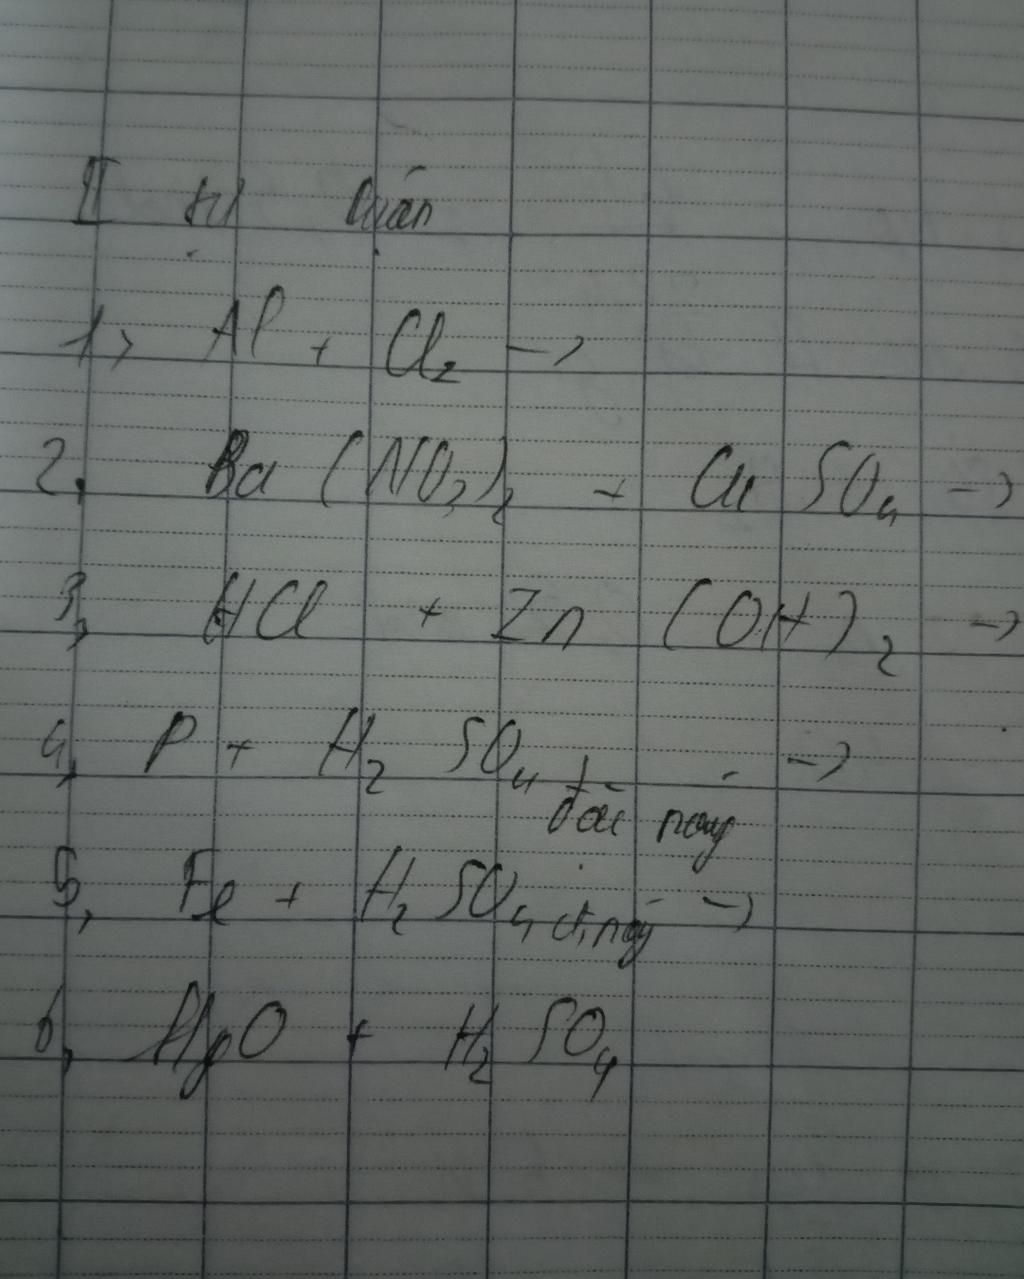 II tự luận
1, Al + Cl₂ →
2, Ba (NO₃)₂ + Cu SO₄ →
3, HCl + Zn (OH)₂ →
4, P + H₂ SO₄ đặc nóng →
5, Fe + H₂ SO₄ đ, nóng →
6, MgO + H₂ SO₄